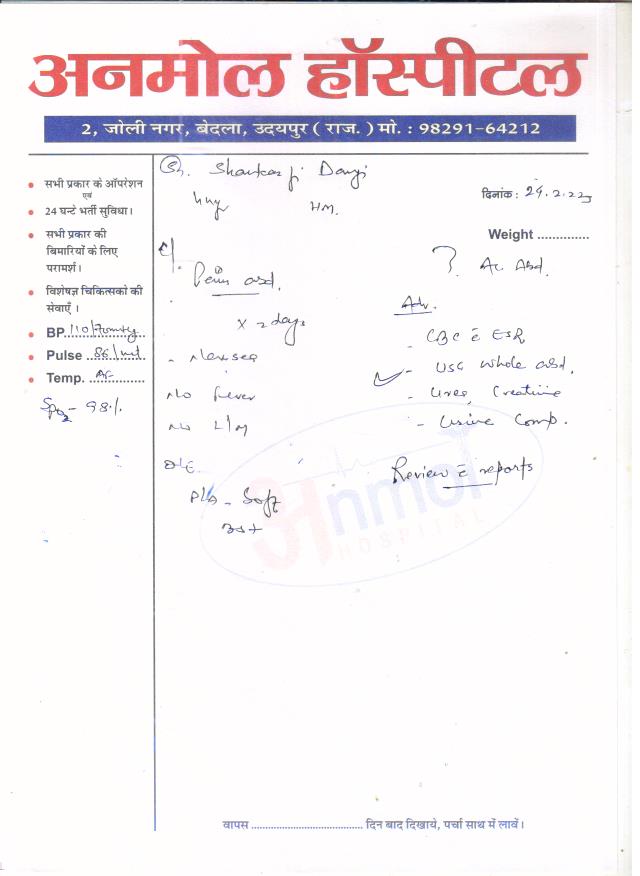 अनमोल हॉस्पीटल
2, जोली नगर, बेदला, उदयपुर ( राज. ) मो. : 98291-64212
सभी प्रकार के ऑपरेशन
एवं
24 घन्टे भर्ती सुविधा।
सभी प्रकार की
बिमारियों के लिए
परामर्श।
विशेषज्ञ चिकित्सकों की
सेवाएँ ।
BP 110/70mmHg
Pulse 86/mt
Temp. Af
SpO2 - 98%
Sh. Shankar ji Dangi
HM.
दिनांक : 29.2.22
Weight ..............
C/o
Pain abd.
x 2 days
- Nausea
No fever
No L/M
O/E
P/A - Soft
BS+
? Ac. Abd.
Adv.
- CBC c̄ ESR
- USG whole abd.
- Urea, Creatinine
- Urine Comp.
Review c̄ reports
anmol
HOSPITAL
वापस ....................................... दिन बाद दिखाये, पर्चा साथ में लावें।